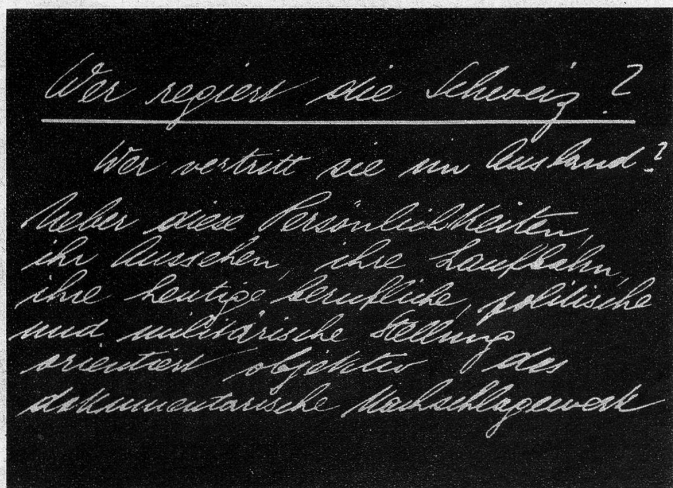 Wer regiert die Schweiz?
Wer vertritt sie im Ausland?
Ueber diese Persönlichkeiten,
ihr Aussehen, ihre Laufbahn,
ihre heutige berufliche, politische
und militärische Stellung
orientiert objektiv das
dokumentarische Nachschlagewerk